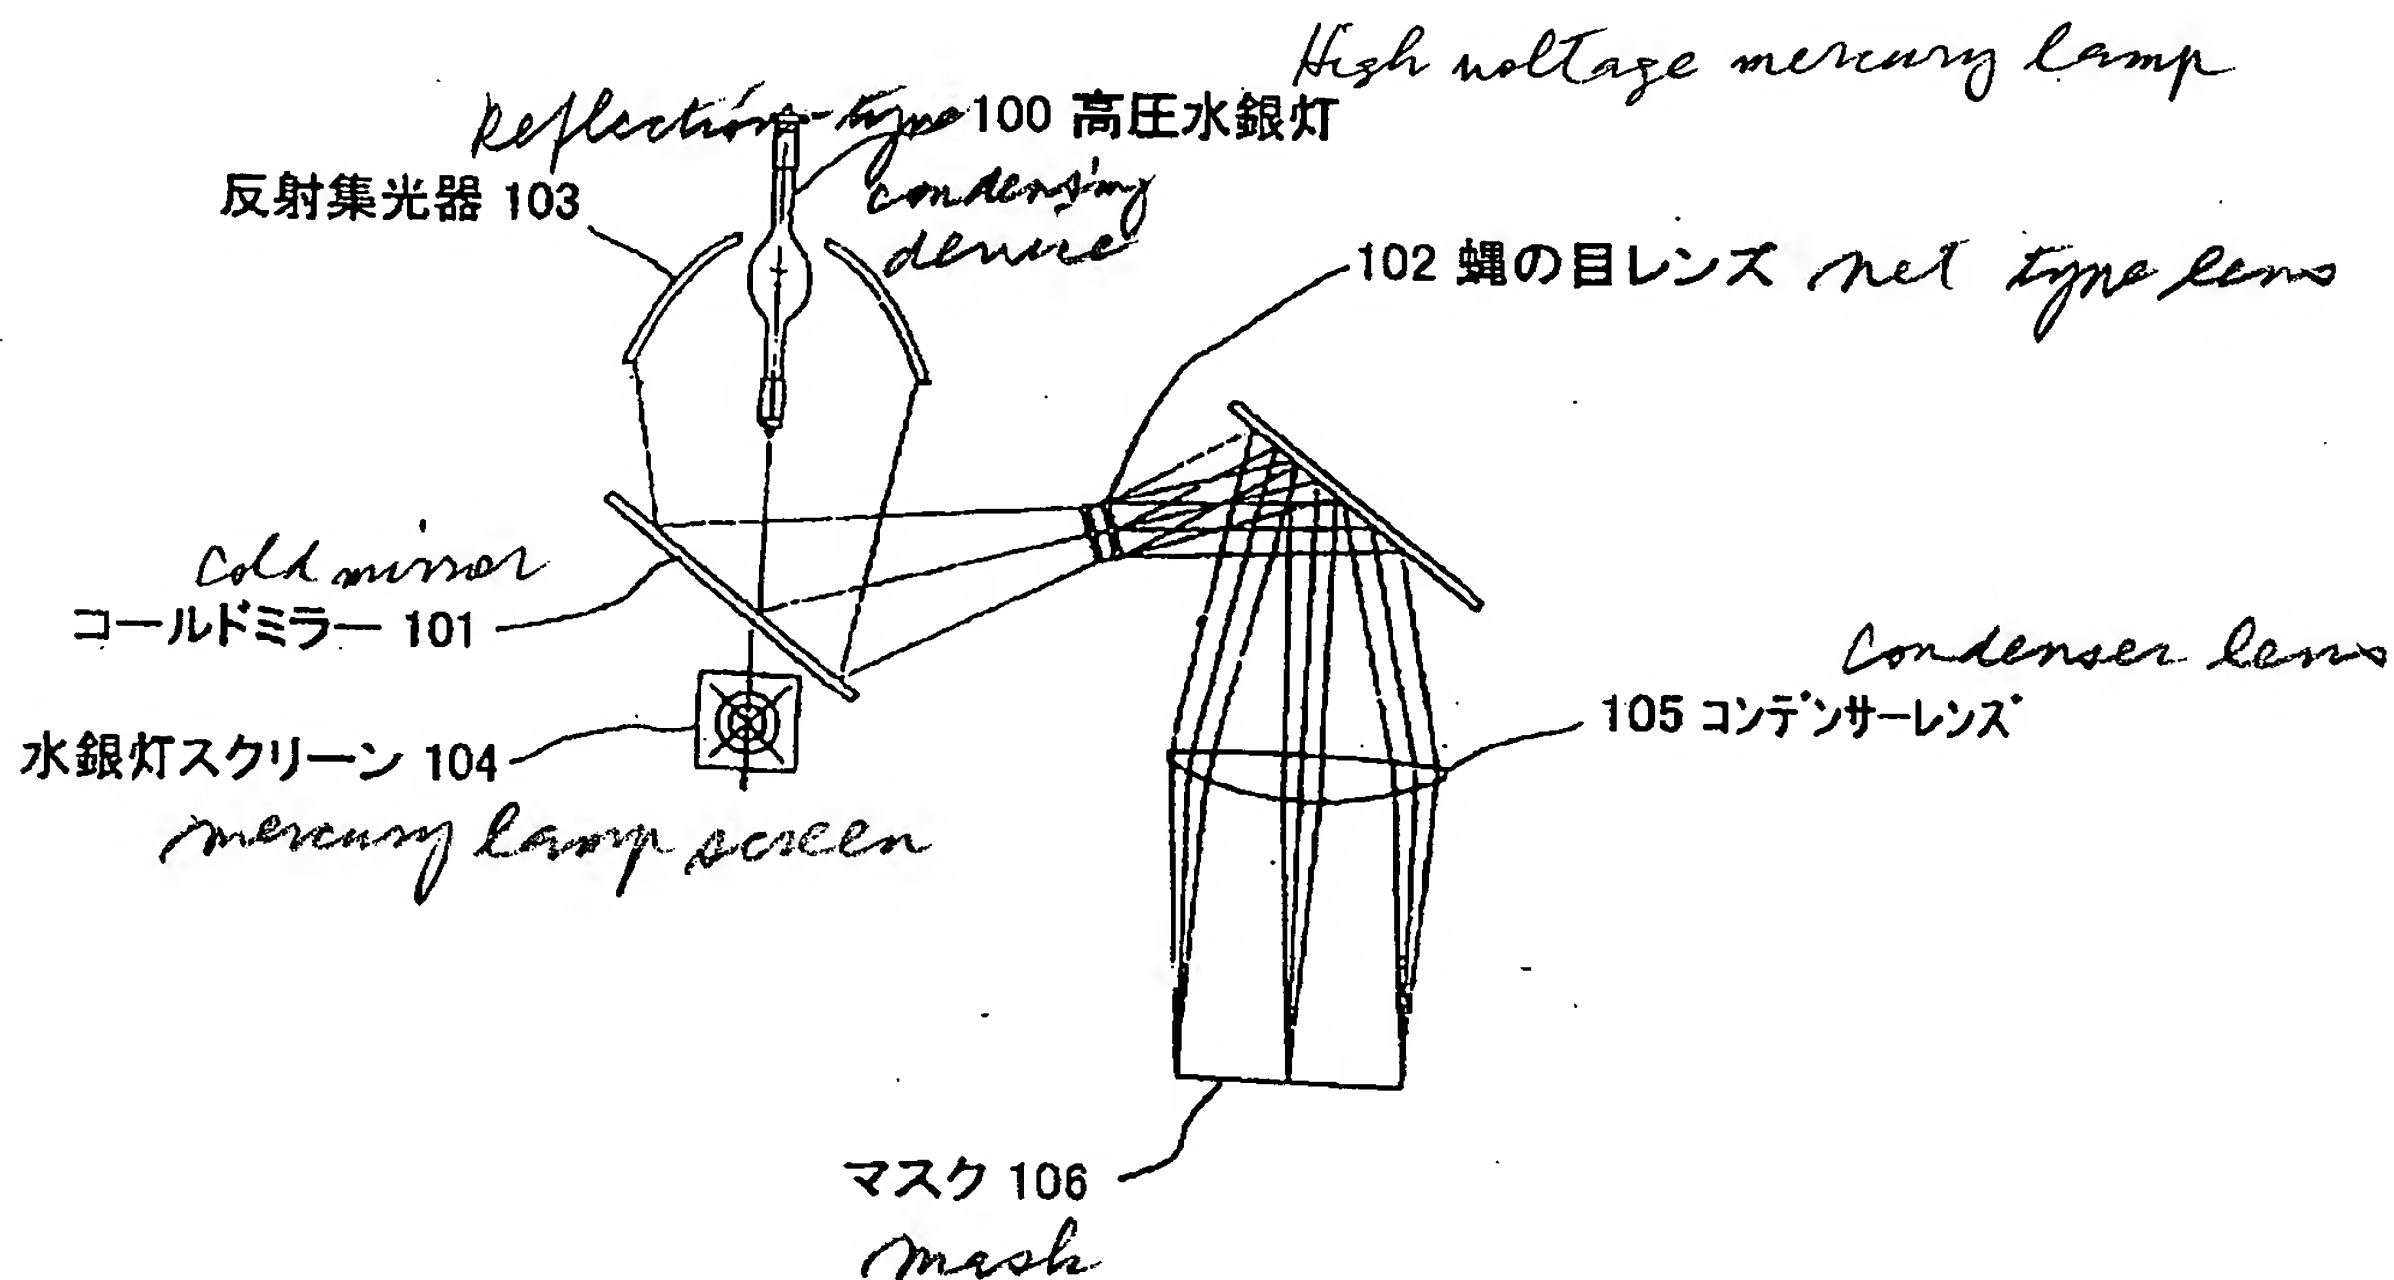 High voltage mercury lamp
Reflection-type
100 高圧水銀灯
反射集光器 103
condensing
device
102 蝿の目レンズ net type lens
cold mirror
コールドミラー 101
condenser lens
105 コンデンサーレンズ
水銀灯スクリーン 104
mercury lamp screen
マスク 106
mask